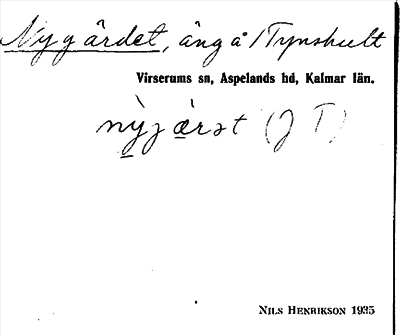 Nygärdet, äng å Tynshult
Virserums sn, Aspelands hd, Kalmar län.
nỳjæ̀rət (J T)
NILS HENRIKSON 1935